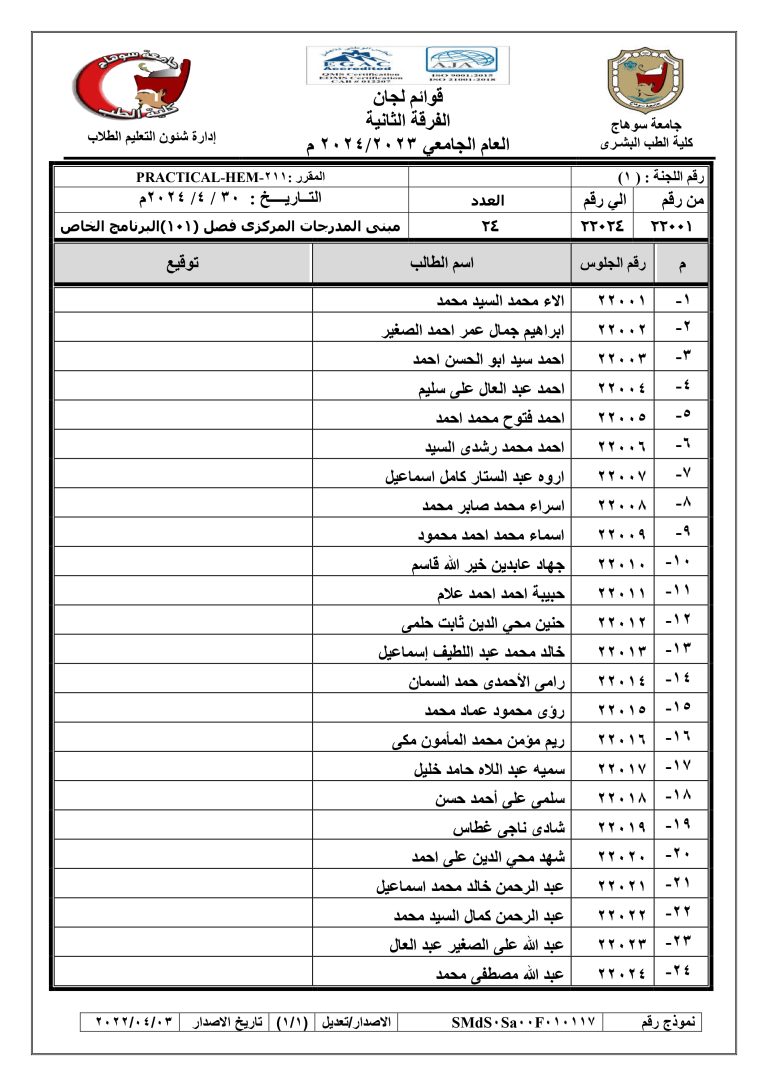 جامعة سوهاج
كلية الطب
إدارة شئون التعليم الطلاب
EGAC
Accredited
QMS Certification
EOMS Certification
CAB # 012207
AJA
ISO 9001:2015
ISO 21001:2018
قوائم لجان
الفرقة الثانية
العام الجامعي ٢٠٢٤/٢٠٢٣ م
جامعة سوهاج
كلية الطب البشرى
رقم اللجنة : ( ١) المقرر :PRACTICAL-HEM-٢١١
من رقم الي رقم العدد التــاريـــخ : ٣٠ / ٤/ ٢٠٢٤م
٢٢٠٠١ ٢٢٠٢٤ ٢٤ مبنى المدرجات المركزى فصل (١٠١)البرنامج الخاص
م رقم الجلوس اسم الطالب توقيع
١- ٢٢٠٠١ الاء محمد السيد محمد
٢- ٢٢٠٠٢ ابراهيم جمال عمر احمد الصغير
٣- ٢٢٠٠٣ احمد سيد ابو الحسن احمد
٤- ٢٢٠٠٤ احمد عبد العال على سليم
٥- ٢٢٠٠٥ احمد فتوح محمد احمد
٦- ٢٢٠٠٦ احمد محمد رشدى السيد
٧- ٢٢٠٠٧ اروه عبد الستار كامل اسماعيل
٨- ٢٢٠٠٨ اسراء محمد صابر محمد
٩- ٢٢٠٠٩ اسماء محمد احمد محمود
١٠- ٢٢٠١٠ جهاد عابدين خير الله قاسم
١١- ٢٢٠١١ حبيبة احمد احمد علام
١٢- ٢٢٠١٢ حنين محي الدين ثابت حلمى
١٣- ٢٢٠١٣ خالد محمد عبد اللطيف إسماعيل
١٤- ٢٢٠١٤ رامى الأحمدى حمد السمان
١٥- ٢٢٠١٥ رؤى محمود عماد محمد
١٦- ٢٢٠١٦ ريم مؤمن محمد المأمون مكى
١٧- ٢٢٠١٧ سميه عبد اللاه حامد خليل
١٨- ٢٢٠١٨ سلمي على أحمد حسن
١٩- ٢٢٠١٩ شادى ناجى غطاس
٢٠- ٢٢٠٢٠ شهد محي الدين على احمد
٢١- ٢٢٠٢١ عبد الرحمن خالد محمد اسماعيل
٢٢- ٢٢٠٢٢ عبد الرحمن كمال السيد محمد
٢٣- ٢٢٠٢٣ عبد الله على الصغير عبد العال
٢٤- ٢٢٠٢٤ عبد الله مصطفي محمد
نموذج رقم SMdS٠Sa٠٠F٠١٠١١٧ الاصدار/تعديل (١/١) تاريخ الاصدار ٢٠٢٢/٠٤/٠٣